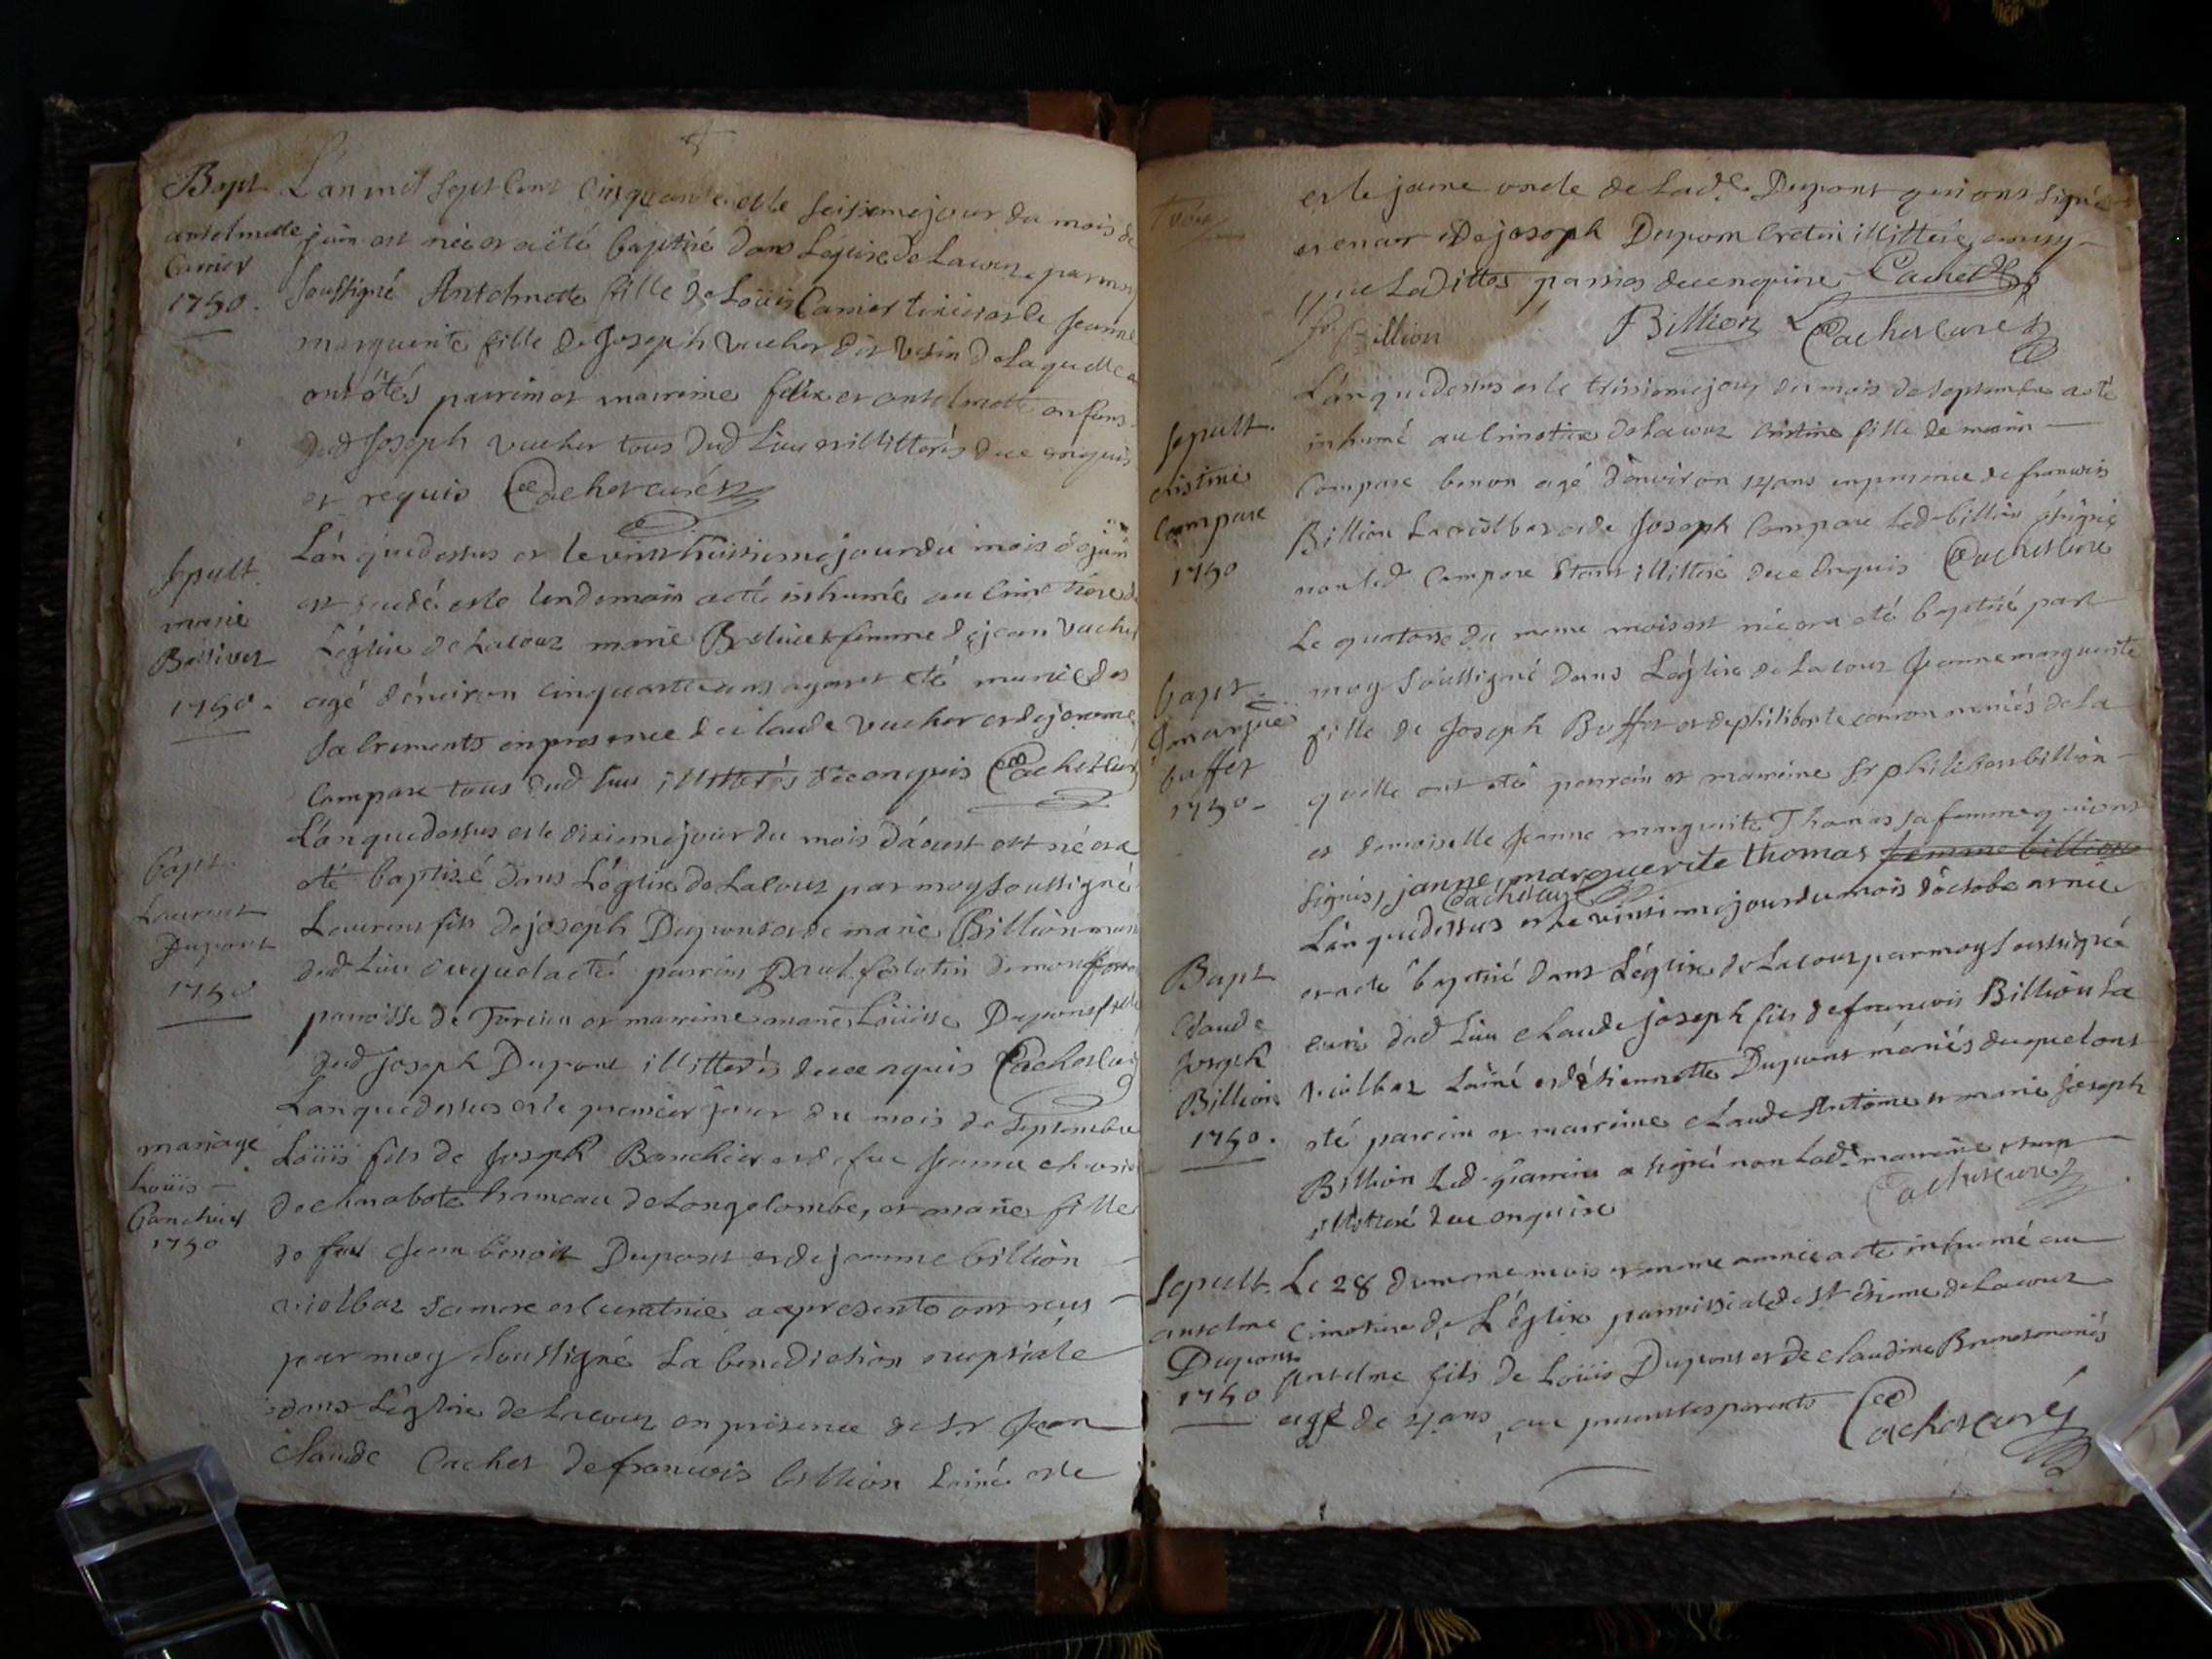 Bapt
antelmette
Carrier
1750.
L'an mil sept cent cinquante et le seisieme jour du mois de
juin est née et a été baptisé dans L'église de Lacoux par moy
soussigné Antelmette fille de Loüis Carrier et Jeanne
marguerite fille de Joseph Vucher dit Vesin de Laquelle
ont étés parrin et marrine felix et antelmette enfans
dud Joseph vucher tous dud Lieu et illitterés de ce enquis
et requis Cachet curé
Sepult.
marie
Bolliet
1750.
L'an que dessus et le vinthuitieme jour du mois de juin
est et le lendemain a été inhumée au cimetiere de
L'église de Lacoux marie femme de jean vucher
agé d'environ cinquante ans ayant eté munie des
sacrements en presence de claude vucher et de jerome
Compare tous dud lieu illitterés de ce enquis Cachet curé
bapt.
Laurent
Dupont
1750
L'an que dessus et le dixieme jour du mois d'aoust est né et a
eté baptizé dans L'église de Lacoux par moy soussigné
Laurent fils de joseph Dupont et de marie Billion
dud Lieu duquel a eté parrin Paul
paroisse de Torcieu et marrine marie Loüise Dupont fille
dud joseph Dupont illitterés de ce enquis Cachet curé
mariage
Loüis
banchiet
1750
L'an que dessus et le premier jour du mois de Septembre
Loüis fils de Joseph Banchiet et de fue
de charabote hameau de Longecombe, et marie fille
de feu Jean benoit Dupont et de jeanne billion
violbaz sa mere et a ce presente ont reçu
par moy soussigné La benediction nuptiale
dans L'église de Lacoux en presence de Sr Jean
claude Cachet de françois billion Lainé et le
et le jeune oncle de Lad.e Dupont qui ont signé
et encor de joseph Dupont illitteré
que Ladittes parties de ce enquise Cachet
fr. Billion Billion Cachet curé
Sepult.
cristine
Compare
1750
L'an que dessus et le jour du mois de septembre a eté
inhumé au cimetiere de Lacoux cristine fille de
Compare agé d'environ 14 ans en presence de françois
Billion La violbaz et de Joseph Compare Led. billion a signé
non led Compare étant illitteré de ce enquis Cachet curé
bapt
J marguerite
buffet
1750
Le quatorse du meme mois est née et a eté baptisé par
moy soussigné dans L'église de Lacoux Jeanne marguerite
fille de Joseph Buffet et de philiberte mariés de La
quelle ont eté parrain et marraine Sr philibert billion
et demoiselle Jeanne marguerite Thomas sa femme qui ont
signés, janne, marguerite thomas femme billion
Cachet curé
Bapt
Claude
Joseph
Billion
1750.
L'an que dessus et le vintieme jour du mois d'octobre est né
et a eté baptisé dans L'église de Lacoux par moy soussigné
curé dud Lieu claude joseph fils de françois Billion La
violbaz Lainé et d'étiennette Dupont mariés duquel ont
eté parrin et marrine claude Antoine et marie joseph
Billion Led. parrin a signé non Lade marraine étant
illitteré de ce enquise Cachet curé
Sepult.
antelme
Dupont
1750
Le 28 du meme mois et meme année a eté inhumé au
cimetiere de L'église parroissiale de St de Lacoux
Antelme fils de Loüis Dupont et de claudine mariés
agé de 4 ans, Cachet curé